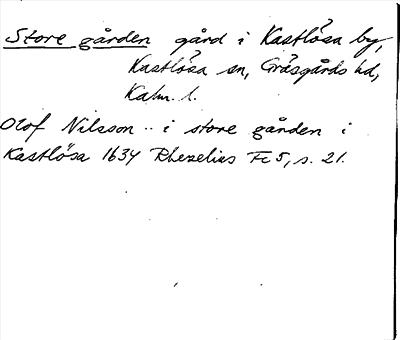 Store gården gård i Kastlösa by,
Kastlösa sn, Gräsgårds hd,
Kalm. l.
Olof Nilsson .. i store gården i
Kastlösa 1634 Rhezelius Fc 5, s. 21.